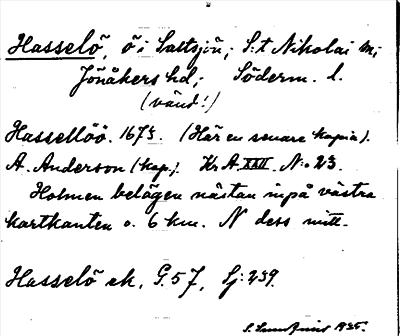 Hasselö, ö i Saltsjön; S:t Nikolai sn;
Jönåkers hd; Söderm. l.
(vänd!)
Hasselöö. 1673. (Här en senare kopia).
A. Anderson (kap.). Kr A. XXII. N:o 23.
Holmen belägen nästan inpå västra
kartkanten o. 6 km. N dess mitt.
Hasselö ek, G. 57, Sj: 239.
1935.